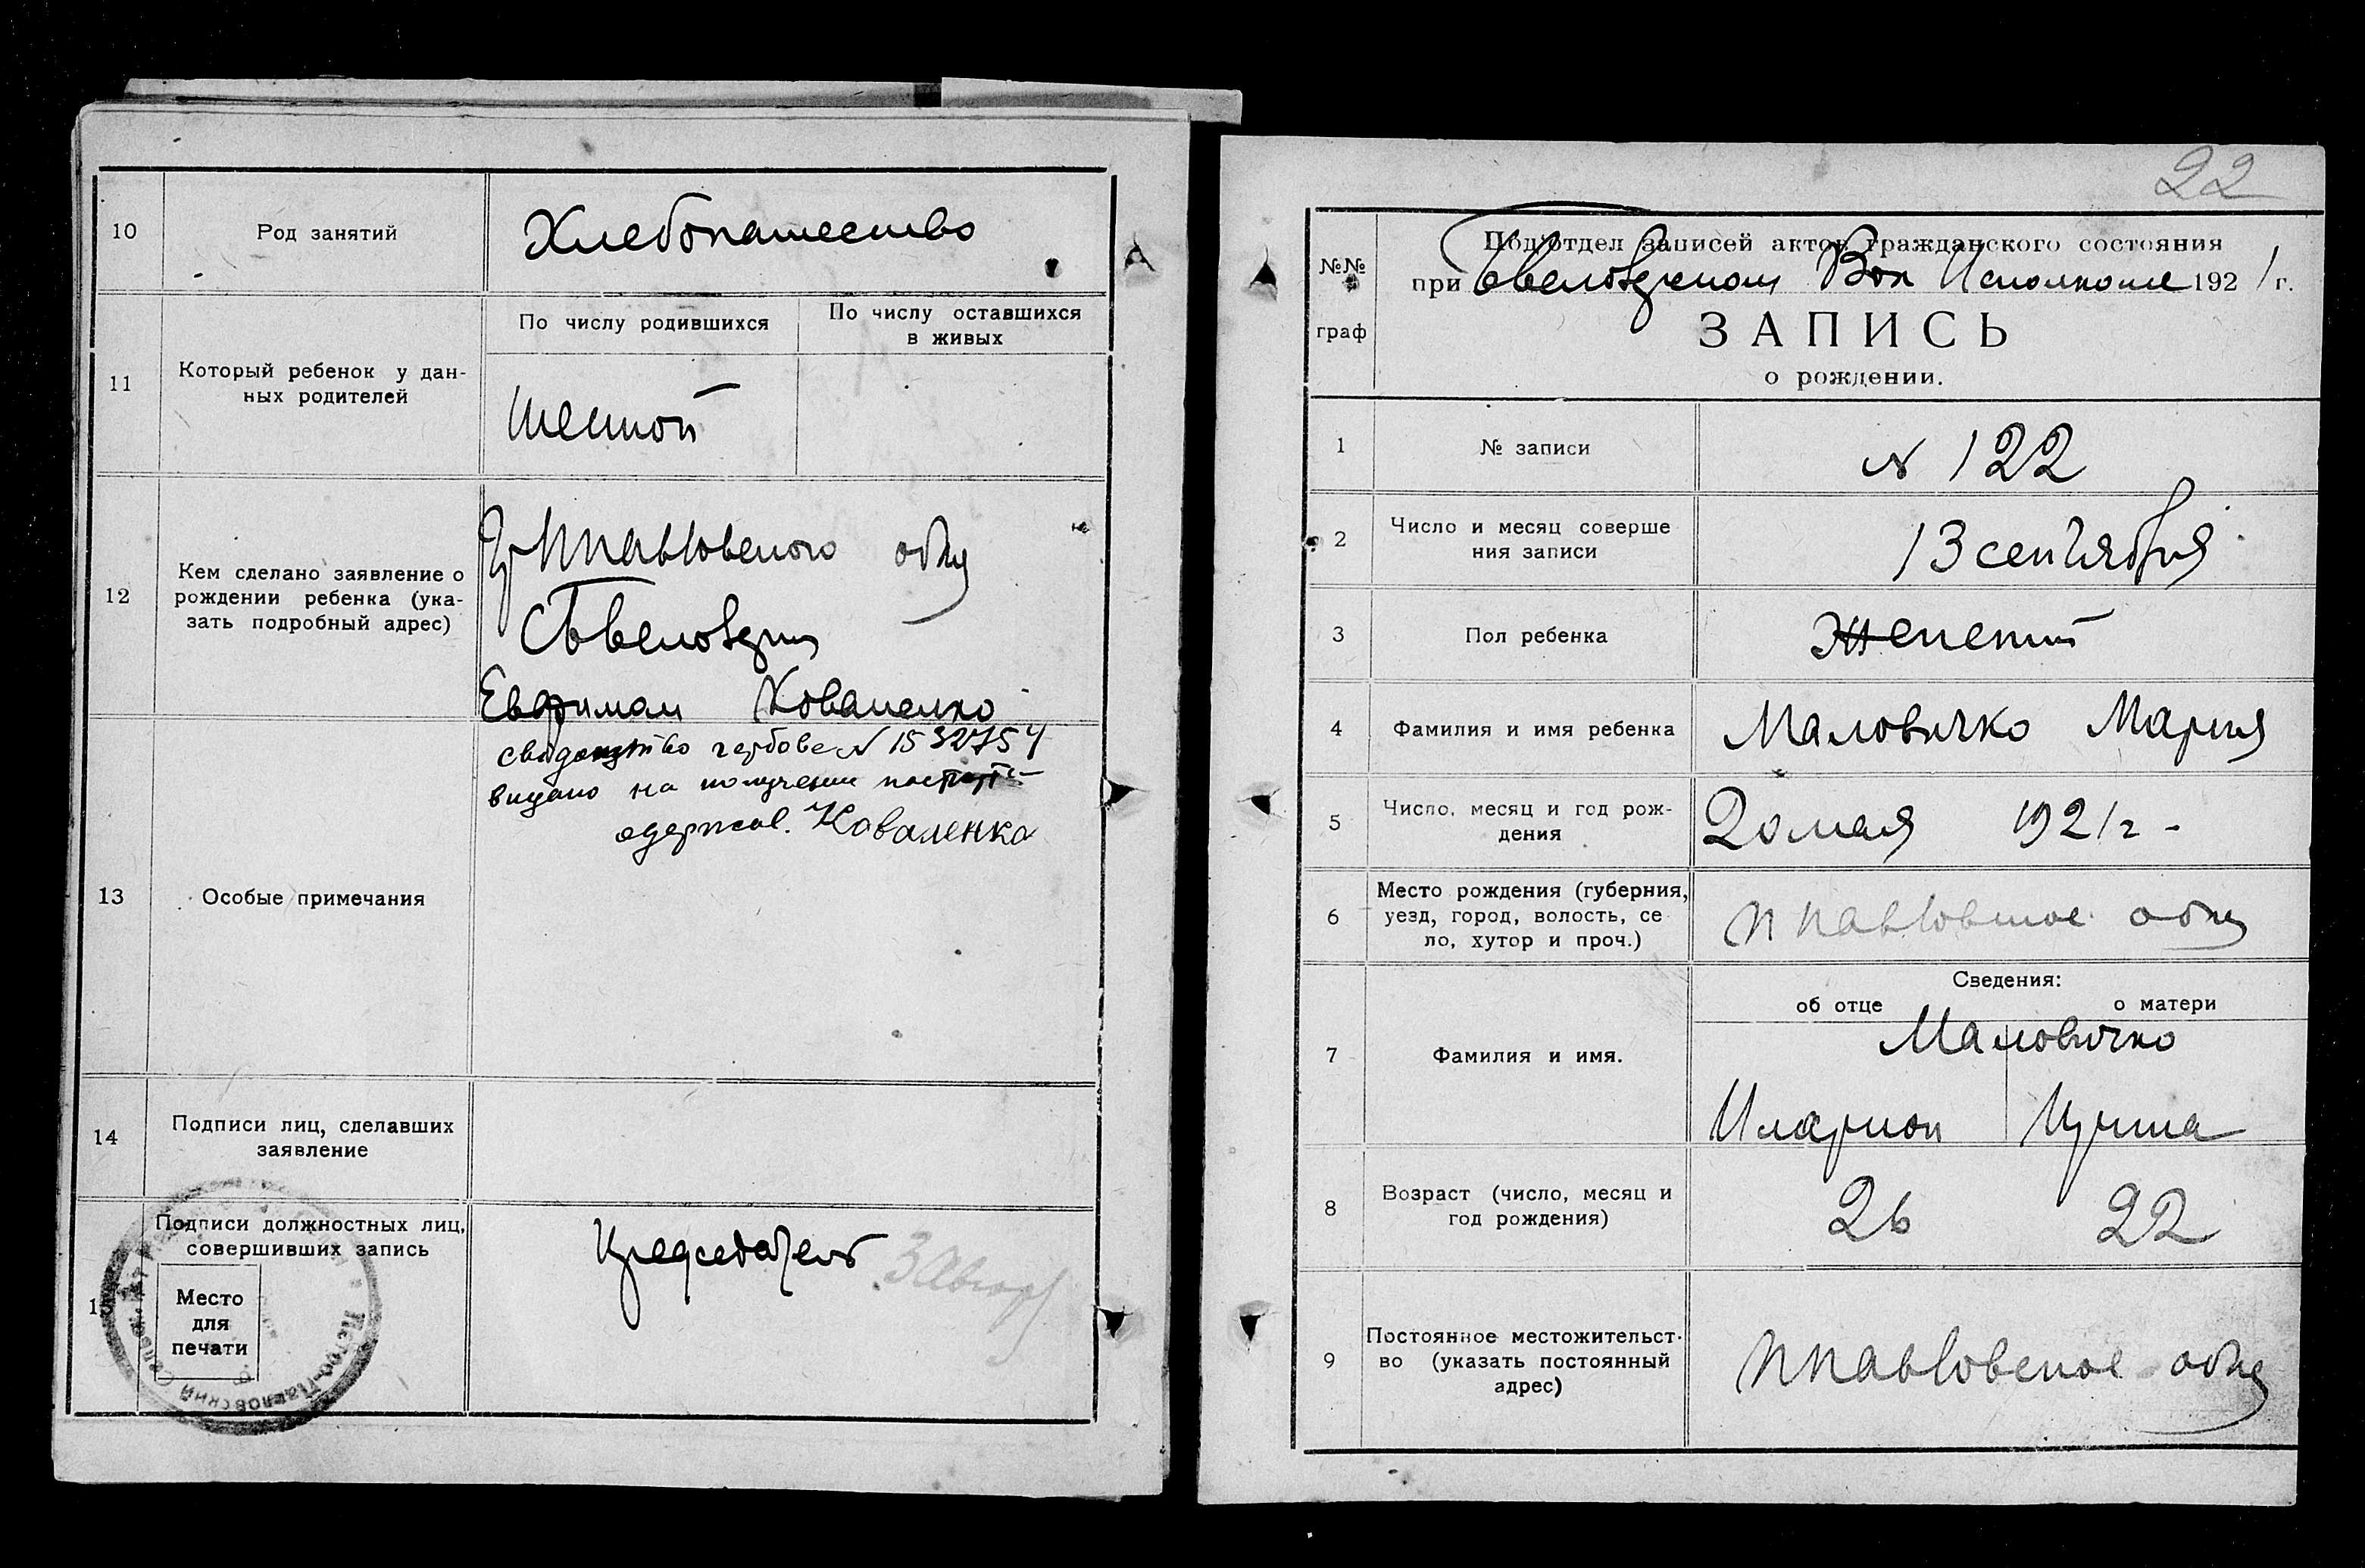 10
Род занятий
Хлебопашество
11
Который ребенок у дан-
ных родителей
По числу родившихся
По числу оставшихся
в живых
Шестой
12
Кем сделано заявление о
рождении ребенка (ука-
зать подробный адрес)
Ппавловского общ
Евфимом Коваленко
13
Особые примечания
свидоцтво гербове N 1532754
видано на получение
одержав. Коваленко
14
Подписи лиц, сделавших
заявление
15
Подписи должностных лиц,
совершивших запись
Место
для
печати
Петро-Павловский
Председатель
22
№№
граф
Под'отдел записей актов гражданского состояния
при Вол Исполкоме 1921 г.
ЗАПИСЬ
о рождении.
1
№ записи
N 122
2
Число и месяц соверше
ния записи
13 сентября
3
Пол ребенка
Женский
4
Фамилия и имя ребенка
Маловичко Мария
5
Число, месяц и год рож-
дения
20 мая 1921 г -
6
Место рождения (губерния,
уезд, город, волость, се
ло, хутор и проч.)
Ппавловское общ
7
Фамилия и имя.
Сведения:
об отце
о матери
Маловичко
Иларион
Ирина
8
Возраст (число, месяц и
год рождения)
26
22
9
Постоянное местожительст-
во (указать постоянный
адрес)
Ппавловское общ